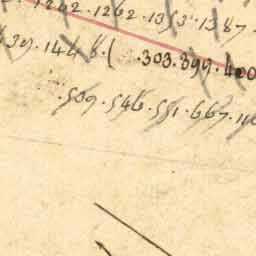 1242.1262.1353.1387.
439.1448.(.303.399.400
.509.546.551.667.110